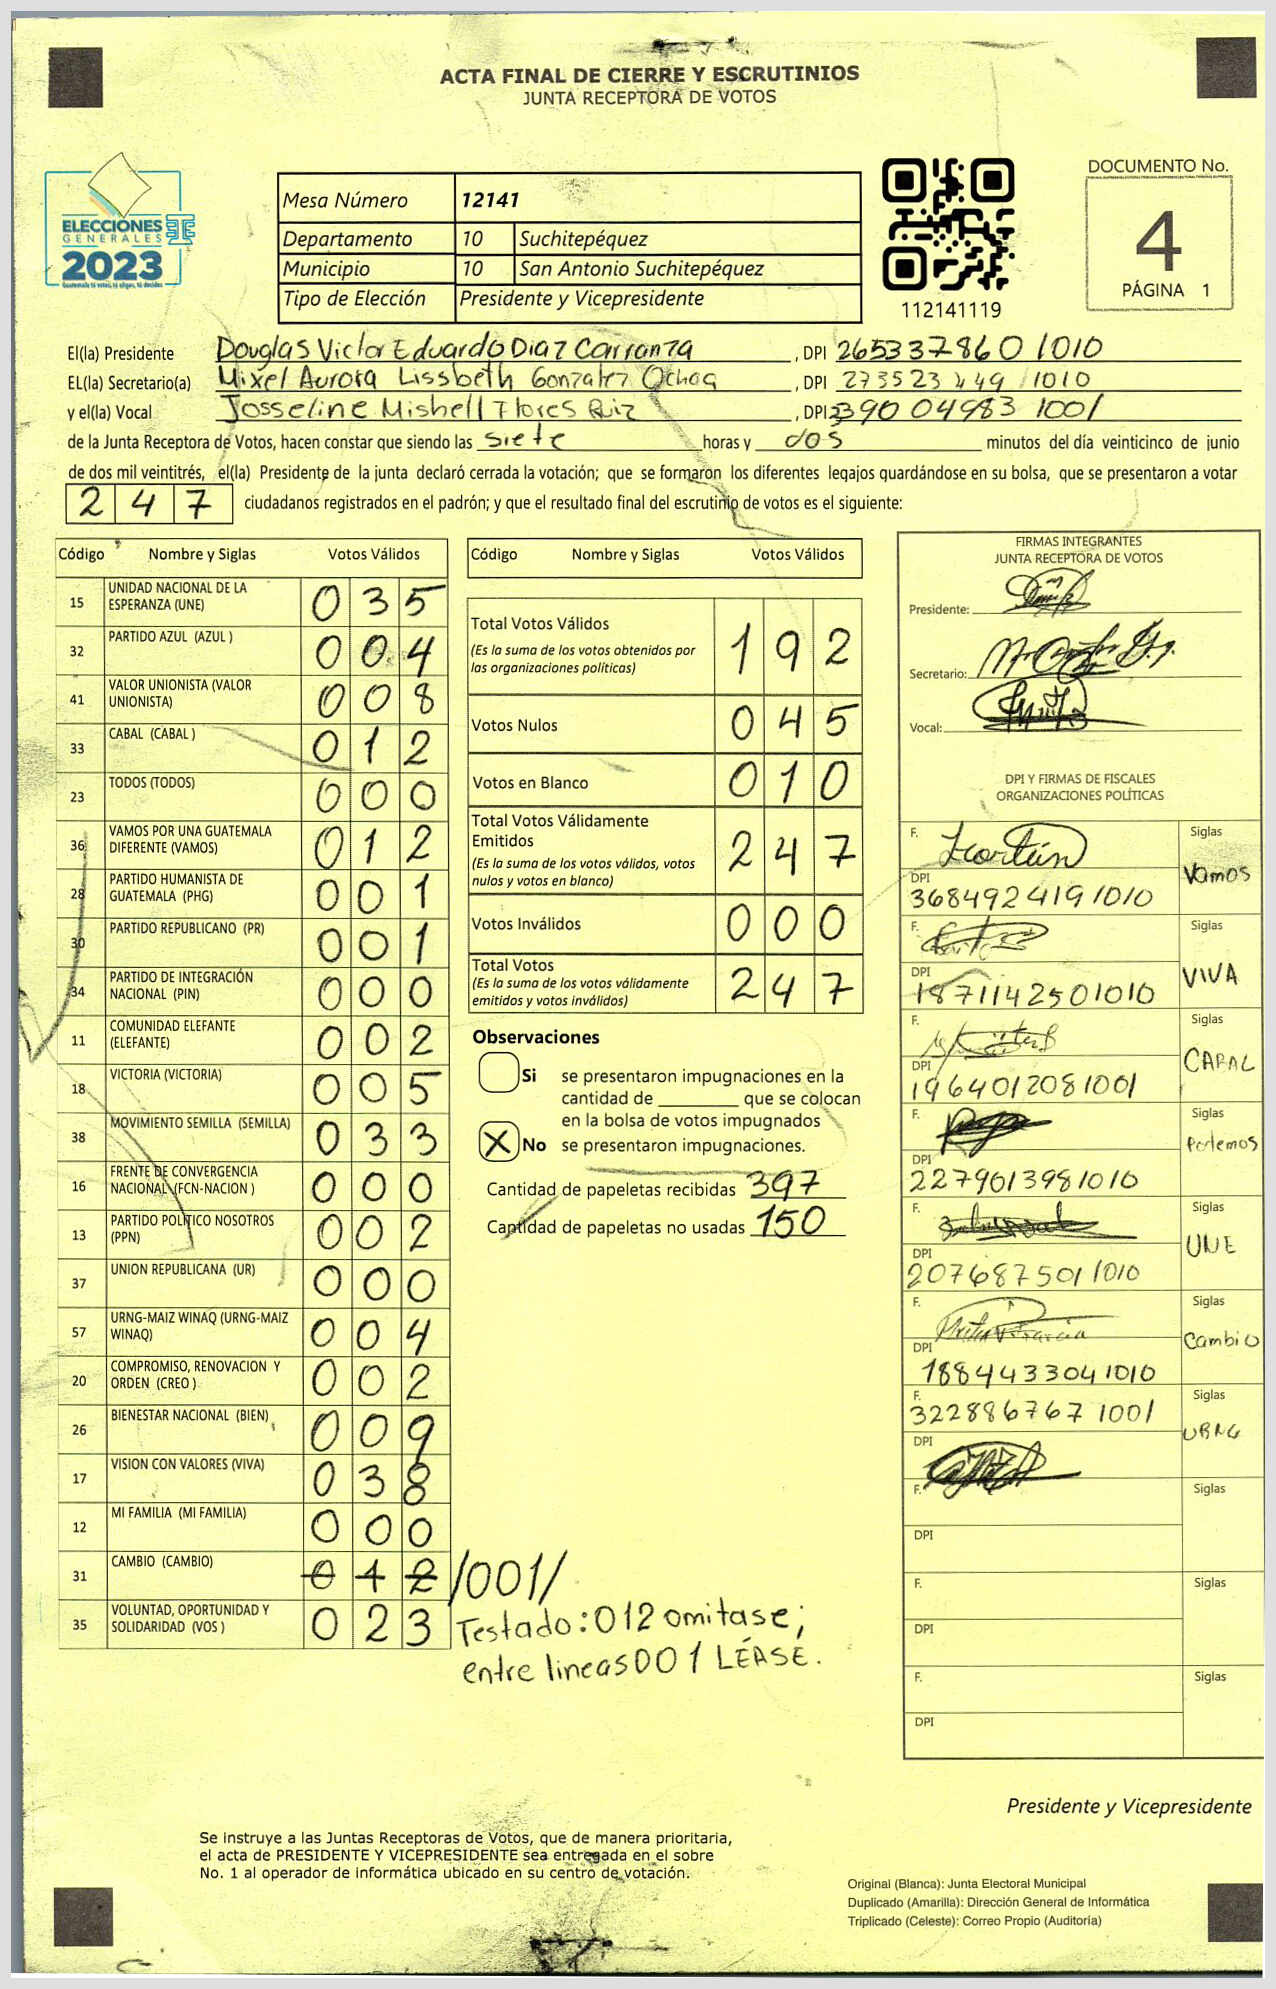 ACTA FINAL DE CIERRE Y ESCRUTINIOS
JUNTA RECEPTORA DE VOTOS
ELECCIONES
GENERALES
2023
Guatemala tú votas, tú eliges, tú decides
Mesa Número 12141
Departamento 10 Suchitepéquez
Municipio 10 San Antonio Suchitepéquez
Tipo de Elección Presidente y Vicepresidente
112141119
DOCUMENTO No.
4
PÁGINA 1
El(la) Presidente Douglas Victor Eduardo Diaz Carranza, DPI 265337860 1010
EL(la) Secretario(a) Mixel Aurora Lissbeth Gonzalez Ochoa, DPI 273523449 1010
y el(la) Vocal Josseline Mishell Flores Ruiz, DPI 239004983 1001
de la Junta Receptora de Votos, hacen constar que siendo las siete horas y dos minutos del día veinticinco de junio
de dos mil veintitrés, el(la) Presidente de la junta declaró cerrada la votación; que se formaron los diferentes legajos quardándose en su bolsa, que se presentaron a votar
247 ciudadanos registrados en el padrón; y que el resultado final del escrutinio de votos es el siguiente:
Código Nombre y Siglas Votos Válidos
15 UNIDAD NACIONAL DE LA ESPERANZA (UNE) 035
32 PARTIDO AZUL (AZUL ) 004
41 VALOR UNIONISTA (VALOR UNIONISTA) 008
33 CABAL (CABAL ) 012
23 TODOS (TODOS) 000
36 VAMOS POR UNA GUATEMALA DIFERENTE (VAMOS) 012
28 PARTIDO HUMANISTA DE GUATEMALA (PHG) 001
30 PARTIDO REPUBLICANO (PR) 001
34 PARTIDO DE INTEGRACIÓN NACIONAL (PIN) 000
11 COMUNIDAD ELEFANTE (ELEFANTE) 002
18 VICTORIA (VICTORIA) 005
38 MOVIMIENTO SEMILLA (SEMILLA) 033
16 FRENTE DE CONVERGENCIA NACIONAL (FCN-NACION ) 000
13 PARTIDO POLITICO NOSOTROS (PPN) 002
37 UNION REPUBLICANA (UR) 000
57 URNG-MAIZ WINAQ (URNG-MAIZ WINAQ) 004
20 COMPROMISO, RENOVACION Y ORDEN (CREO ) 002
26 BIENESTAR NACIONAL (BIEN) 009
17 VISION CON VALORES (VIVA) 038
12 MI FAMILIA (MI FAMILIA) 000
31 CAMBIO (CAMBIO) 012 /001/
35 VOLUNTAD, OPORTUNIDAD Y SOLIDARIDAD (VOS ) 023
Testado: 012 omitase;
entre lineas 001 LÉASE.
Código Nombre y Siglas Votos Válidos
Total Votos Válidos 192
(Es la suma de los votos obtenidos por
las organizaciones políticas)
Votos Nulos 045
Votos en Blanco 010
Total Votos Válidamente
Emitidos 247
(Es la suma de los votos válidos, votos
nulos y votos en blanco)
Votos Inválidos 000
Total Votos 247
(Es la suma de los votos válidamente
emitidos y votos inválidos)
Observaciones
Si se presentaron impugnaciones en la
cantidad de ________ que se colocan
en la bolsa de votos impugnados
X No se presentaron impugnaciones.
Cantidad de papeletas recibidas 397
Cantidad de papeletas no usadas 150
FIRMAS INTEGRANTES
JUNTA RECEPTORA DE VOTOS
Presidente:
Secretario:
Vocal:
DPI Y FIRMAS DE FISCALES
ORGANIZACIONES POLÍTICAS
F. Siglas
Vamos
DPI
3684924191010
F. Siglas
VIVA
DPI
1871142501010
F. Siglas
CABAL
DPI
1964012081001
F. Siglas
Podemos
DPI
2279013981010
F. Siglas
UNE
DPI
2076875011010
F. Siglas
Cambio
DPI
1884433041010
F. Siglas
322886767 1001
URNG
DPI
F. Siglas
DPI
F. Siglas
DPI
F. Siglas
DPI
Presidente y Vicepresidente
Se instruye a las Juntas Receptoras de Votos, que de manera prioritaria,
el acta de PRESIDENTE Y VICEPRESIDENTE sea entregada en el sobre
No. 1 al operador de informática ubicado en su centro de votación.
Original (Blanca): Junta Electoral Municipal
Duplicado (Amarilla): Dirección General de Informática
Triplicado (Celeste): Correo Propio (Auditoría)